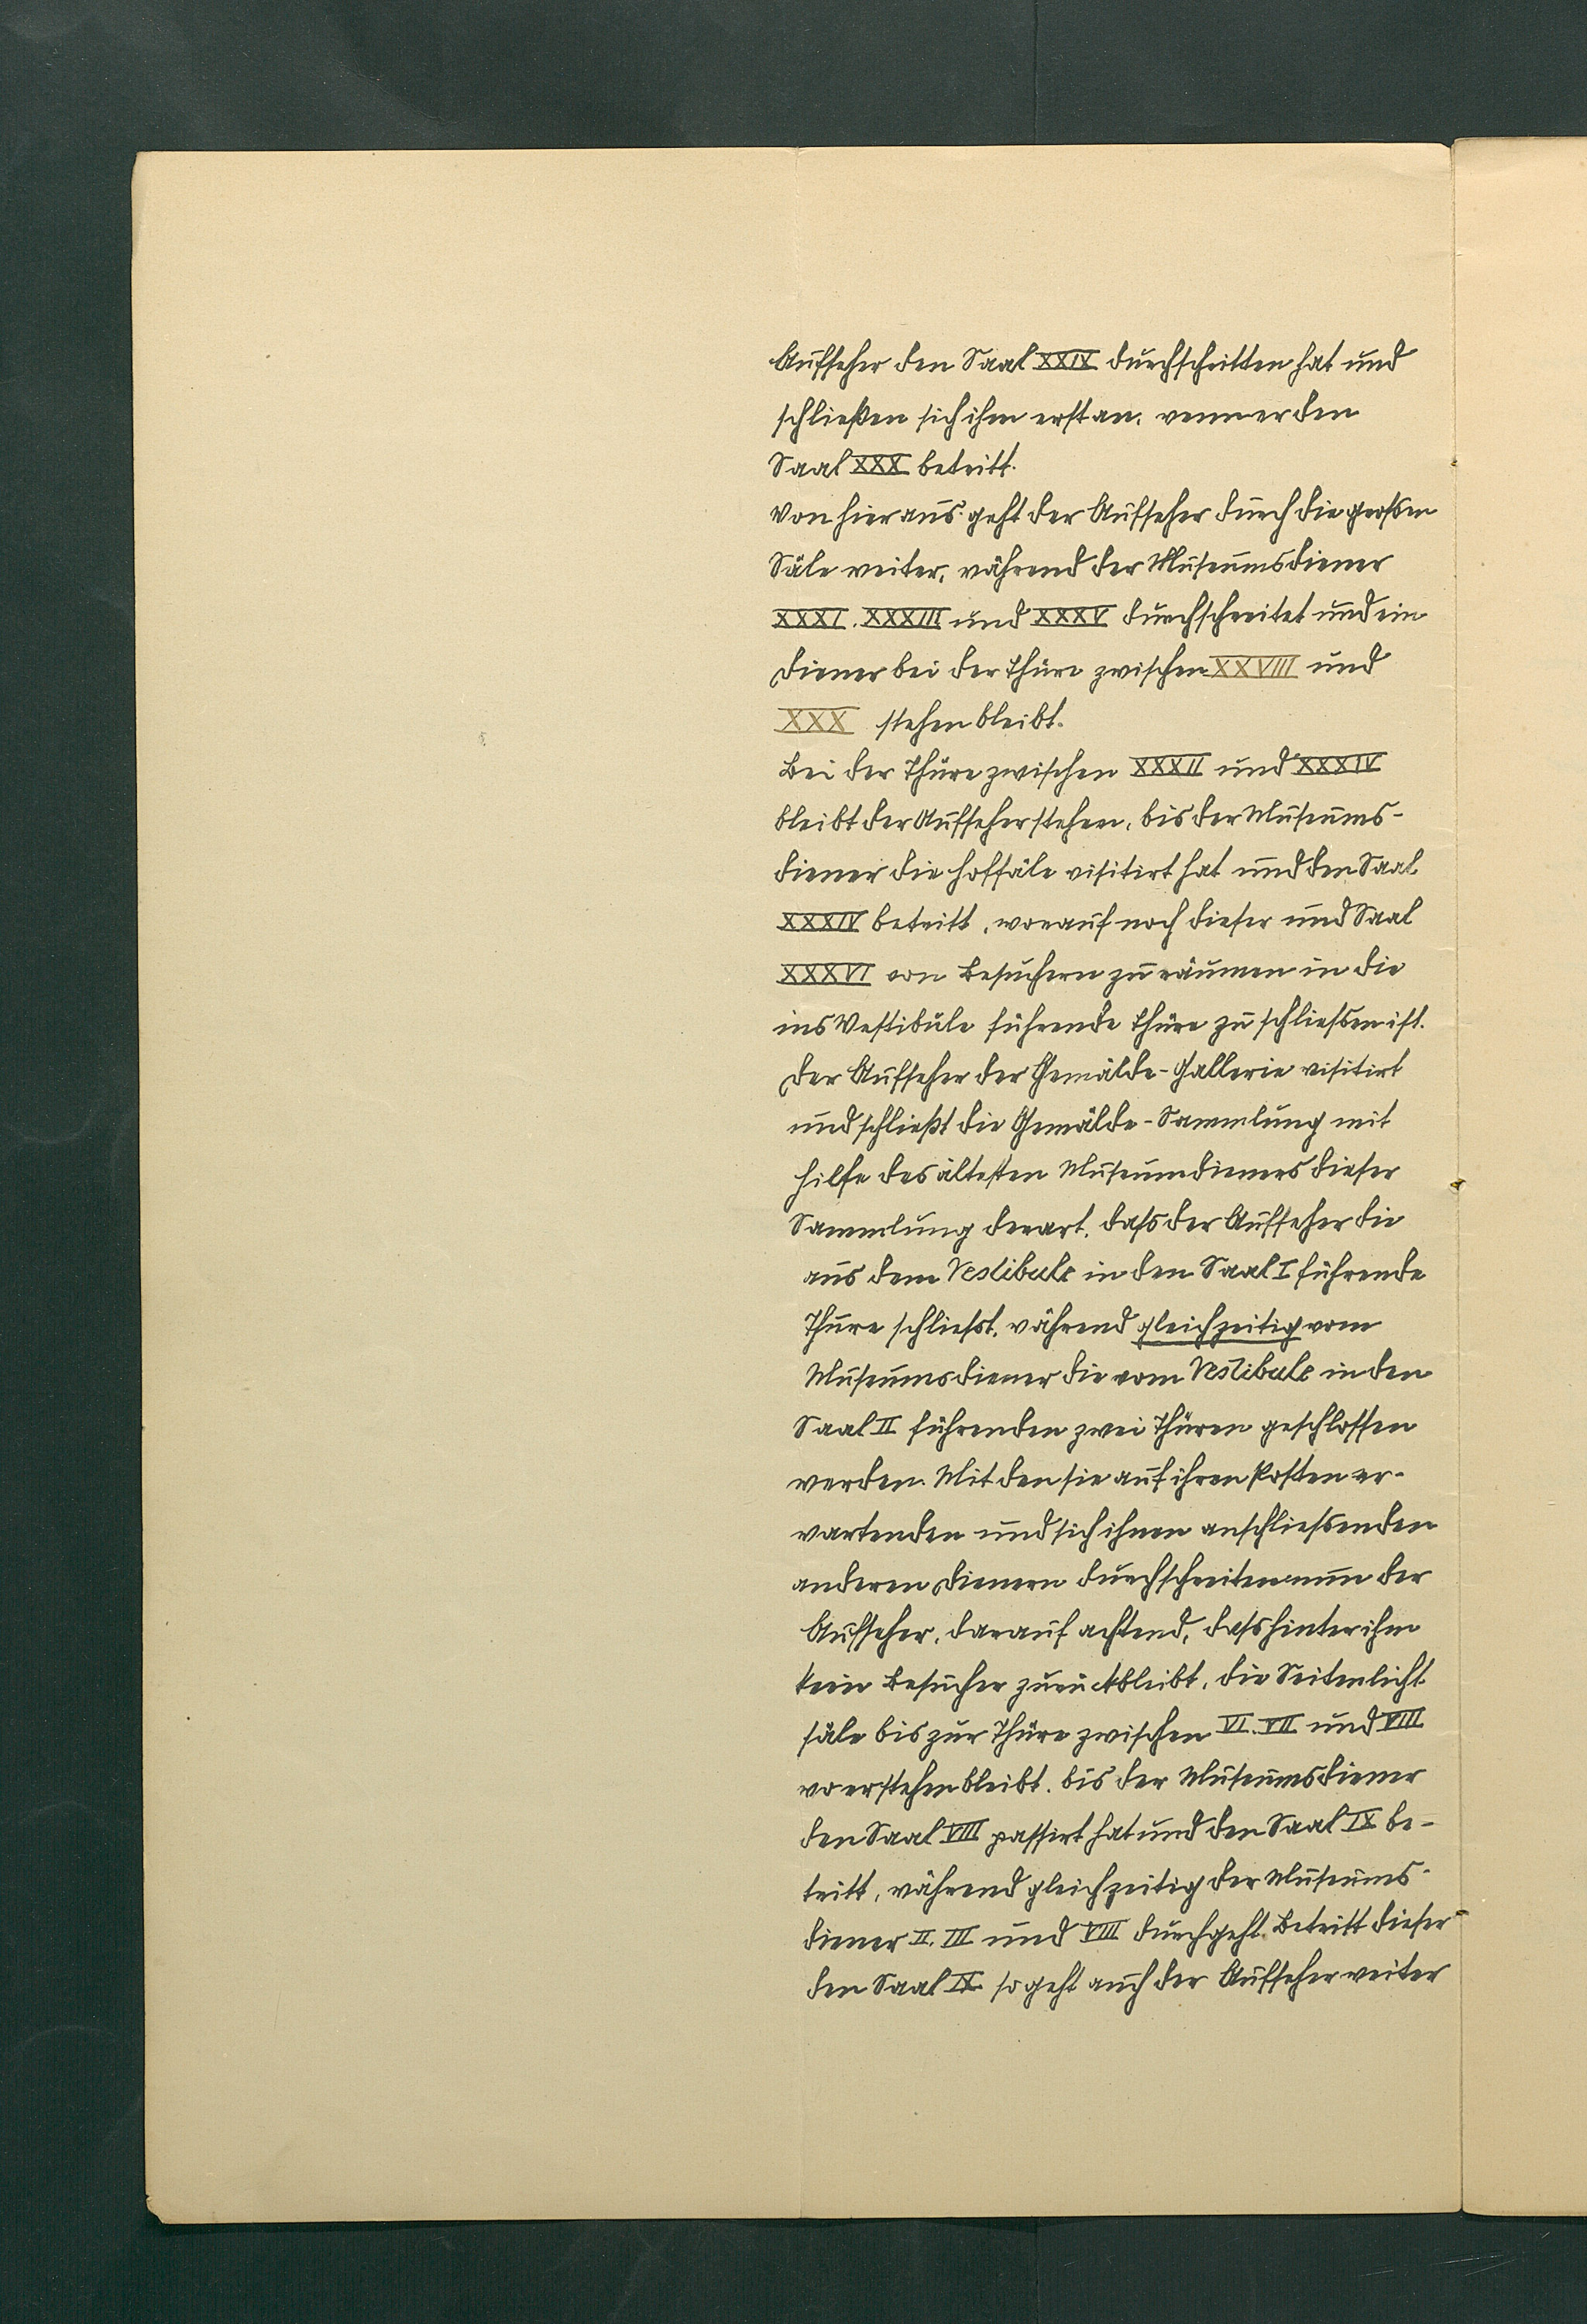 Aufseher den Saal XXIX durchschritten hat und
schließen sich ihm erst an, wenn er den
Saal XXX betritt.
Von hier aus geht der Aufseher durch die grossen
Säle weiter, während der Museumsdiener
XXXI. XXXIII und XXXV durchschreitet und ein
Diener bei der Thüre zwischen XXVIII und
XXX stehen bleibt.
Bei der Thüre zwischen XXXII und XXXIV
bleibt der Aufseher stehen, bis der Museums-
diener die Hofsäle visitirt hat und den Saal
XXXIV betritt, worauf noch dieser und Saal
XXXVI von Besuchern zu räumen in die
ins Vestibüle führende Thüre zu schliessen ist.
Der Aufseher der Gemälde-Gallerie visitirt
und schließt die Gemälde-Sammlung mit
Hilfe des ältesten Museumdieners dieser
Sammlung derart, dass der Aufseher die
aus dem Vestibule in den Saal I führende
Thüre schliesst, während gleichzeitig vom
Museumsdiener die vom Vestibule in den
Saal II führenden zwei Thüren geschlossen
werden. Mit den sie auf ihren Posten er-
wartenden und sich ihnen anschliessenden
anderen Dienern durchschreiten nun der
Aufseher, darauf achtend, dass hinter ihm
kein Besucher zurückbleibt, die Seitenlicht
säle bis zur Thüre zwischen VI. VII und VIII
wo er stehen bleibt, bis der Museumsdiener
den Saal VIII passirt hat und den Saal IX be-
tritt, während gleichzeitig der Museums-
diener II. III und VIII durchgeht. Betritt dieser
den Saal IX so geht auch der Aufseher weiter